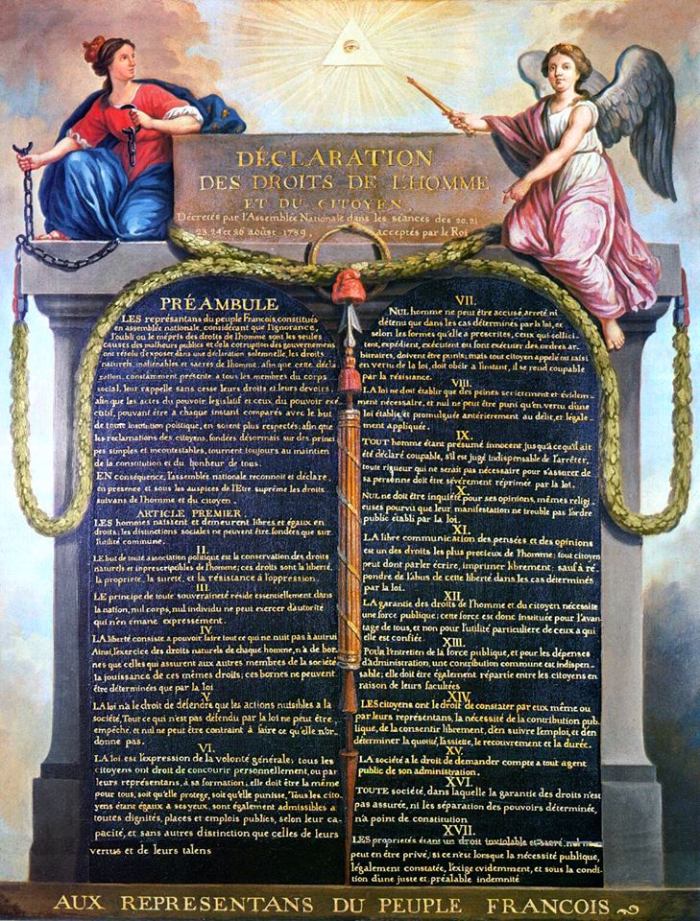 DÉCLARATION
DES DROITS DE L'HOMME
ET DU CITOYEN,
Décretés par l'Assemblée Nationale dans les séances des 20, 21
23, 24 et 26 août 1789, acceptés par le Roi
PRÉAMBULE
LES représentans du peuple François, constitués
en assemblée nationale, considérant que l'ignorance,
l'oubli ou le mépris des droits de l'homme sont les seules
causes des malheurs publics et de la corruption des gouvernemens
ont résolu d'exposer dans une déclaration solemnelle, les droits
naturels, inaliénables et sacrés de l'homme; afin que cette décla
ration, constamment présente a tous les membres du corps
social, leur rappelle sans cesse leurs droits et leurs devoirs;
afin que les actes du pouvoir législatif et ceux du pouvoir exé
cutif, pouvant être a chaque instant comparés avec le but
de toute institution politique, en soient plus respectés; afin que
les reclamations des citoyens, fondées désormais sur des princi
pes simples et incontestables, tournent toujours au maintien
de la constitution et du bonheur de tous.
EN conséquence, l'assemblée nationale reconnoit et déclare,
en presence et sous les auspices de l'Etre suprême les droits
suivans de l'homme et du citoyen.
ARTICLE PREMIER.
LES hommes naissent et demeurent libres et égaux en
droits; les distinctions sociales ne peuvent être fondées que sur
l'utilité commune.
II.
LE but de toute association politique est la conservation des droits
naturels et inprescriptibles de l'homme; ces droits sont la liberté,
la propriété, la sureté, et la résistance à l'oppression.
III.
LE principe de toute souveraineté réside essentiellement dans
la nation, nul corps, nul individu ne peut exercer d'autorité
qui n'en émane expressement.
IV.
LA liberté consiste a pouvoir faire tout ce qui ne nuit pas à autrui
Ainsi, l'exercice des droits naturels de chaque homme, n'a de bor-
nes que celles qui assurent aux autres membres de la société
la jouissance de ces mêmes droits; ces bornes ne peuvent
être déterminées que par la loi
V.
LA loi n'a le droit de défendre que les actions nuisibles a la
société. Tout ce qui n'est pas défendu par la loi ne peut être
empêché, et nul ne peut être contraint à faire ce qu'elle n'or-
donne pas.
VI.
LA loi est l'expression de la volonté générale; tous les
citoyens ont droit de concourir personnellement, ou par
leurs représentans, à sa formation; elle doit être la même
pour tous, soit qu'elle protege, soit qu'elle punisse, Tous les cito
yens étant égaux à ses yeux, sont également admissibles a
toutes dignités, places et emplois publics, selon leur ca-
pacité, et sans autres distinction que celles de leurs
vertus et de leurs talens
VII.
NUL homme ne peut être accusé, arreté, ni
détenu que dans les cas déterminés par la loi, et
selon les formes qu'elle a prescrites, ceux qui sollici-
tent, expédient, exécutent ou font exécuter des ordres ar-
bitraires, doivent être punis; mais tout citoyen appelé ou saisi
en vertu de la loi, doit obéir a l'instant, il se rend coupable
par la résistance.
VIII.
LA loi ne doit établir que des peines strictement et évidem-
ment nécessaire, et nul ne peut être puni qu'en vertu d'une
loi établie et promulguée antérieurement au délit, et légale-
ment appliquée.
IX.
TOUT homme étant présumé innocent jusqu'a ce qu'il ait
été déclaré coupable, s'il est jugé indispensable de l'arrêter,
toute rigueur qui ne serait pas nécessaire pour s'assurer de
sa personne doit être sévèrement réprimée par la loi.
X.
NUL ne doit être inquiété pour ses opinions, mêmes religi
euses pourvu que leur manifestation ne trouble pas l'ordre
public établi par la loi.
XI.
LA libre communication des pensées et des opinions
est un des droits les plus precieux de l'homme; tout citoyen
peut dont parler écrire, imprimer librement; sauf à ré
pondre de l'abus de cette liberté dans les cas déterminés
par la loi.
XII.
LA garantie des droits de l'homme et du citoyen nécessite
une force publique; cette force est donc instituée pour l'avan-
tage de tous, et non pour l'utilité particuliere de ceux a qui
elle est confiée.
XIII.
Pour l'entretien de la force publique, et pour les dépenses
d'administration, une contribution commune est indispen-
sable; elle doit être également répartie entre les citoyens en
raison de leurs facultées
XIV.
LES citoyens ont le droit de constater par eux même ou
par leurs représentans, la nécessité de la contribution pub-
lique, de la consentir librement, d'en suivre l'emploi, et d'en
déterminer la quotité, l'assiette, le recouvrement et la durée.
XV.
LA société a le droit de demander compte a tout agent
public de son administration.
XVI.
TOUTE société, dans laquelle la garantie des droits n'est
pas assurée, ni les séparation des pouvoirs déterminée,
n'a point de constitution
XVII.
LES propriétés étant un droit inviolable et sacré, nul ne
peut en être privé, si ce n'est lorsque la nécessité publique,
légalement constatée, l'exige évidemment, et sous la condi-
tion d'une juste et préalable indemnité
AUX REPRESENTANS DU PEUPLE FRANCOIS